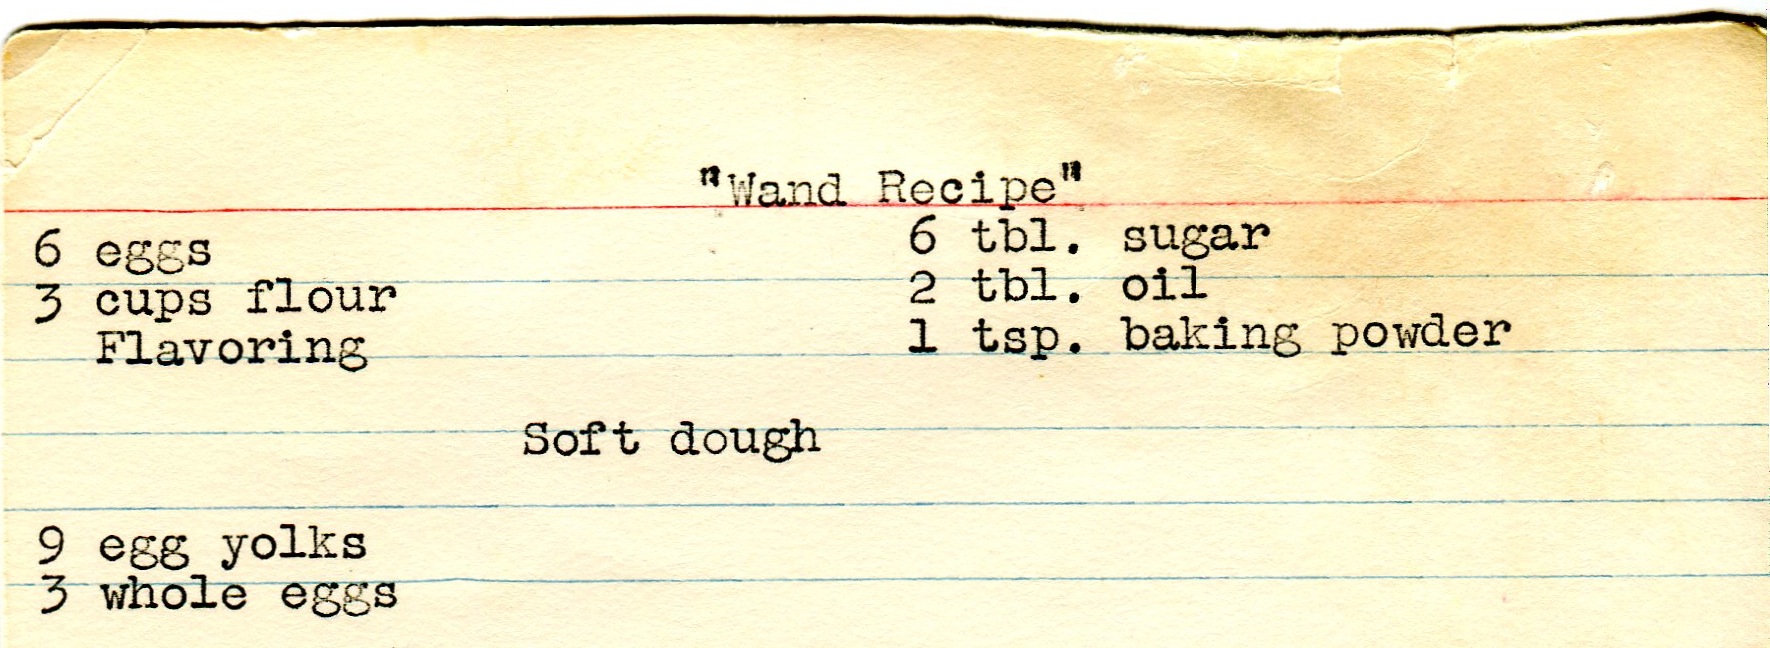 "Wand Recipe"
6 eggs 6 tbl. sugar
3 cups flour 2 tbl. oil
Flavoring 1 tsp. baking powder
Soft dough
9 egg yolks
3 whole eggs